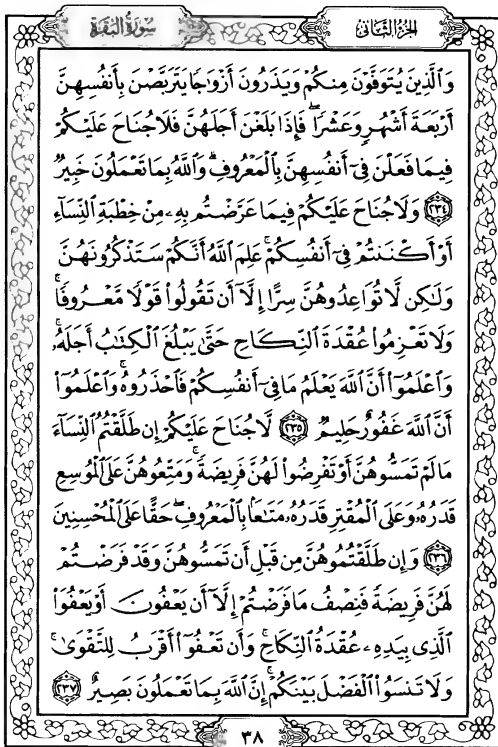 سُورَةُ البَقَرَةِ
الجُزْءُ الثَّانِي
وَٱلَّذِينَ يُتَوَفَّوْنَ مِنكُمْ وَيَذَرُونَ أَزْوَٰجًا يَتَرَبَّصْنَ بِأَنفُسِهِنَّ
أَرْبَعَةَ أَشْهُرٍ وَعَشْرًا ۖ فَإِذَا بَلَغْنَ أَجَلَهُنَّ فَلَا جُنَاحَ عَلَيْكُمْ
فِيمَا فَعَلْنَ فِىٓ أَنفُسِهِنَّ بِٱلْمَعْرُوفِ ۗ وَٱللَّهُ بِمَا تَعْمَلُونَ خَبِيرٌ
﴿٢٣٤﴾ وَلَا جُنَاحَ عَلَيْكُمْ فِيمَا عَرَّضْتُم بِهِۦ مِنْ خِطْبَةِ ٱلنِّسَآءِ
أَوْ أَكْنَنتُمْ فِىٓ أَنفُسِكُمْ ۚ عَلِمَ ٱللَّهُ أَنَّكُمْ سَتَذْكُرُونَهُنَّ
وَلَٰكِن لَّا تُوَاعِدُوهُنَّ سِرًّا إِلَّآ أَن تَقُولُوا۟ قَوْلًا مَّعْرُوفًا ۚ
وَلَا تَعْزِمُوا۟ عُقْدَةَ ٱلنِّكَاحِ حَتَّىٰ يَبْلُغَ ٱلْكِتَٰبُ أَجَلَهُۥ ۚ
وَٱعْلَمُوٓا۟ أَنَّ ٱللَّهَ يَعْلَمُ مَا فِىٓ أَنفُسِكُمْ فَٱحْذَرُوهُ ۚ وَٱعْلَمُوٓا۟
أَنَّ ٱللَّهَ غَفُورٌ حَلِيمٌ ﴿٢٣٥﴾ لَّا جُنَاحَ عَلَيْكُمْ إِن طَلَّقْتُمُ ٱلنِّسَآءَ
مَا لَمْ تَمَسُّوهُنَّ أَوْ تَفْرِضُوا۟ لَهُنَّ فَرِيضَةً ۚ وَمَتِّعُوهُنَّ عَلَى ٱلْمُوسِعِ
قَدَرُهُۥ وَعَلَى ٱلْمُقْتِرِ قَدَرُهُۥ مَتَٰعًۢا بِٱلْمَعْرُوفِ ۖ حَقًّا عَلَى ٱلْمُحْسِنِينَ
﴿٢٣٦﴾ وَإِن طَلَّقْتُمُوهُنَّ مِن قَبْلِ أَن تَمَسُّوهُنَّ وَقَدْ فَرَضْتُمْ
لَهُنَّ فَرِيضَةً فَنِصْفُ مَا فَرَضْتُمْ إِلَّآ أَن يَعْفُونَ أَوْ يَعْفُوَا۟
ٱلَّذِى بِيَدِهِۦ عُقْدَةُ ٱلنِّكَاحِ ۚ وَأَن تَعْفُوٓا۟ أَقْرَبُ لِلتَّقْوَىٰ ۚ
وَلَا تَنسَوُا۟ ٱلْفَضْلَ بَيْنَكُمْ ۚ إِنَّ ٱللَّهَ بِمَا تَعْمَلُونَ بَصِيرٌ ﴿٢٣٧﴾
٣٨